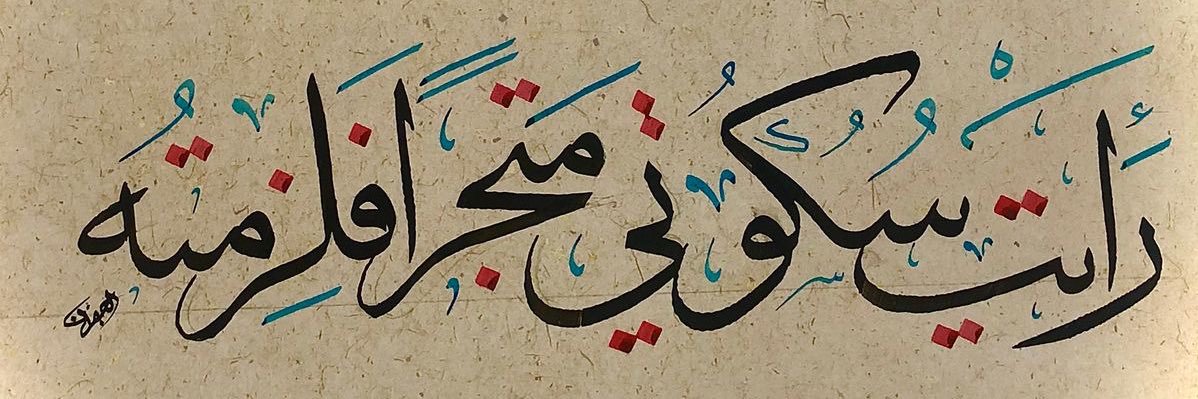 رَأَيْتُ سُكُوتِي مَتْجَرًا فَلَزِمْتُهُ